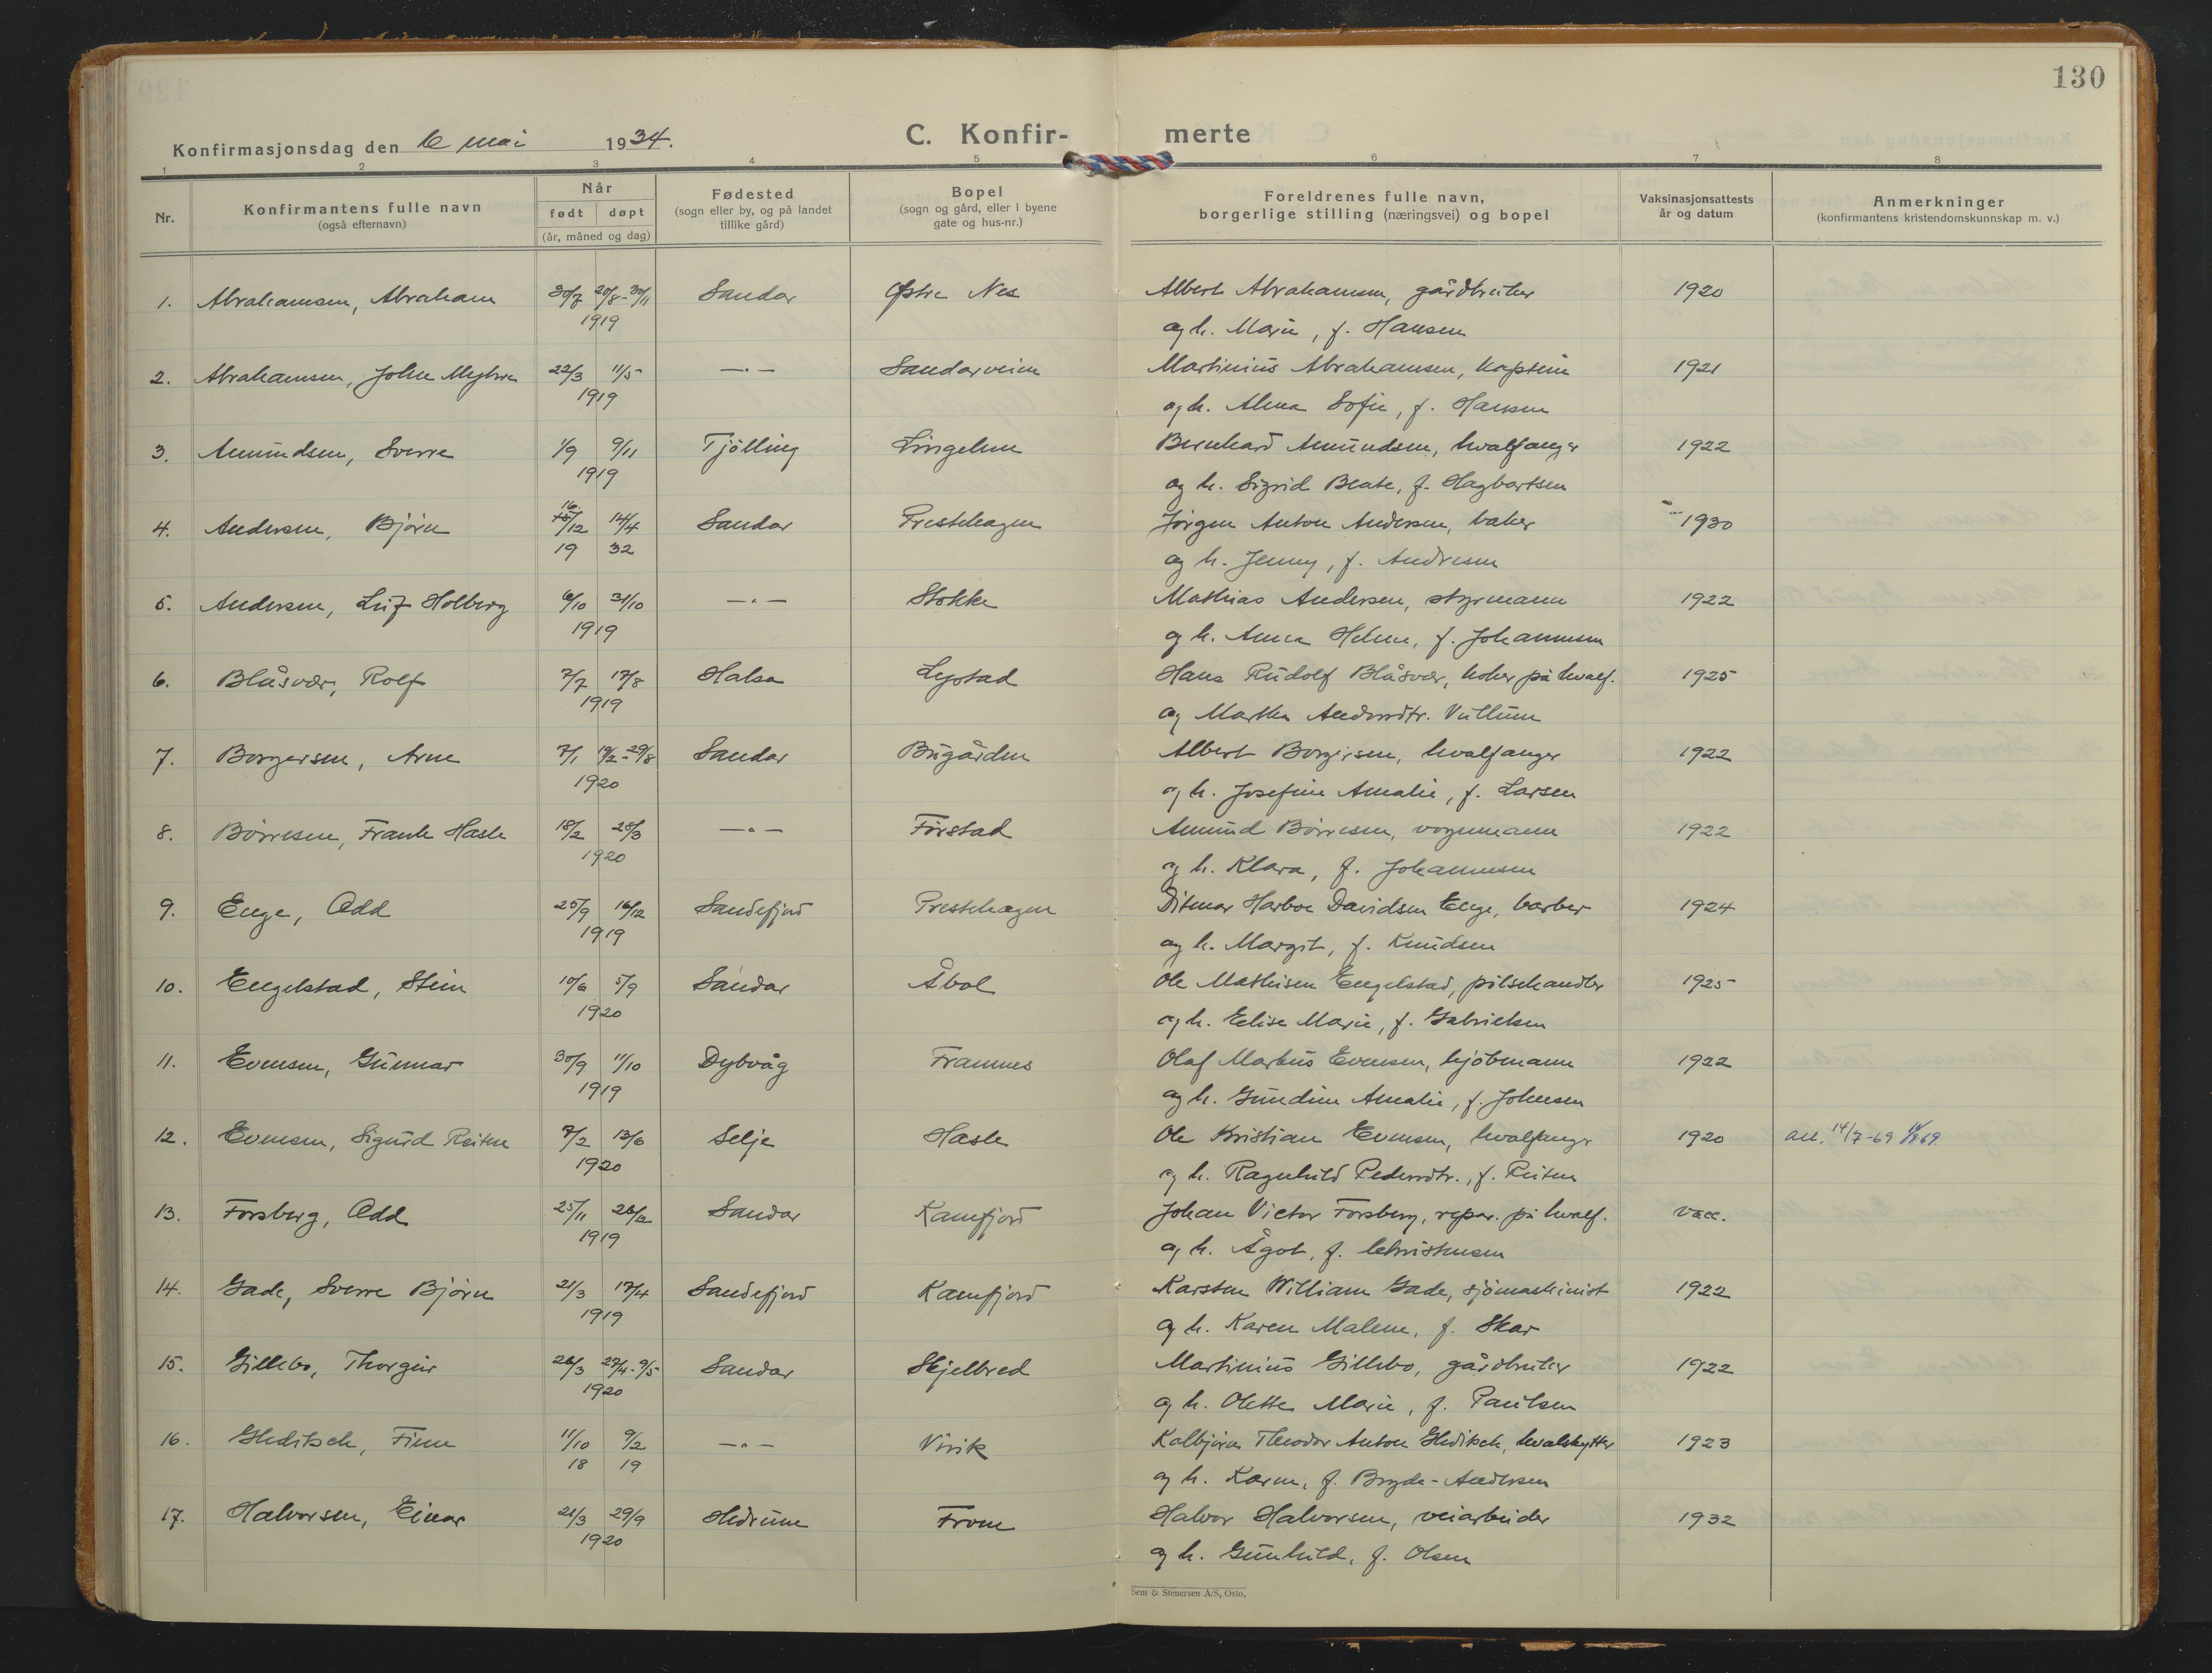 130
Konfirmasjonsdag den 6 mai 1934.
C. Konfir- merte
1 2 3 4 5 6 7 8
Nr.
Konfirmantens fulle navn
(også efternavn)
Når
født døpt
(år, måned og dag)
Fødested
(sogn eller by, og på landet
tillike gård)
Bopel
(sogn og gård, eller i byene
gate og hus-nr.)
Foreldrenes fulle navn,
borgerlige stilling (næringsvei) og bopel
Vaksinasjonsattests
år og datum
Anmerkninger
(konfirmantens kristendomskunnskap m. v.)
1. Abrahamsen, Abraham 30/7 20/8-30/11 Sandar Østre Nes Albert Abrahamsen, gårdbruker 1920
1919 og h. Marie, f. Hansen
2. Abrahamsen, John Myhre 22/3 11/5 —"— Sandarveien Martinius Abrahamsen, kaptein 1921
1919 og h. Alma Sofie, f. Hansen
3. Amundsen, Sverre 1/9 9/11 Tjølling Lingelem Bernhard Amundsen, hvalfanger 1922
1919 og h. Sigrid Beate, f. Hagbartsen
4. Andersen, Bjørn 16/12 14/4 Sandar Prestehagen Jørgen Anton Andersen, baker 1930
19 32 og h. Jenny, f. Andresen
5. Andersen, Leif Holberg 6/10 31/10 —"— Stokke Mathias Andersen, styrmann 1922
1919 og h. Anna Helene, f. Johannesen
6. Blåsvær, Rolf 7/7 17/8 Halsa Lystad Hans Rudolf Blåsvær, koker på hvalf. 1925
1919 og Martha Andersdtr. Vullum
7. Borgersen, Arne 7/1 19/2-29/8 Sandar Bugården Albert Borgersen, hvalfanger 1922
1920 og h. Josefine Amalie, f. Larsen
8. Børresen, Frank Hasle 18/2 28/3 —"— Førstad Amund Børresen, vognmann 1922
1920 og h. Klara, f. Johannesen
9. Enge, Odd 25/9 16/12 Sandefjord Prestehagen Ditmar Harboe Davidsen Enge, barber 1924
1919 og h. Margit, f. Knudsen
10. Engelstad, Stein 10/6 5/9 Sandar Åbol Ole Mathisen Engelstad, pølsehandler 1925
1920 og h. Elise Marie, f. Gabrielsen
11. Evensen, Gunnar 30/9 11/10 Dybvåg Framnes Olaf Markus Evensen, kjøbmann 1922
1919 og h. Gundine Amalie, f. Johnsen
12. Evensen, Sigurd Reiten 7/2 13/6 Selje Hasle Ole Kristian Evensen, hvalfanger 1920 att. 14/7-69
1920 og h. Ragnhild Pedersdtr., f. Reiten
13. Forsberg, Odd 25/11 26/12 Sandar Kamfjord Johan Victor Forsberg, repar. på hvalf. vacc.
1919 og h. Ågot, f. Christensen
14. Gade, Sverre Bjørn 21/3 17/4 Sandefjord Kamfjord Karsten William Gade, sjømaskinist 1922
1919 og h. Karen Malene, f. Skar
15. Gillebo, Thorgeir 26/3 27/4-9/5 Sandar Skjelbred Martinius Gillebo, gårdbruker 1922
1920 og h. Olette Marie, f. Paulsen
16. Gleditsch, Finn 11/10 9/2 —"— Virik Kolbjørn Theodor Anton Gleditsch, hvalskytter 1923
18 19 og h. Karen, f. Bryde-Andersen
17. Halvorsen, Einar 21/3 29/9 Hedrum From Halvor Halvorsen, veiarbeider 1932
1920 og h. Gunhild, f. Olsen
Sem & Stenersen A/S, Oslo.